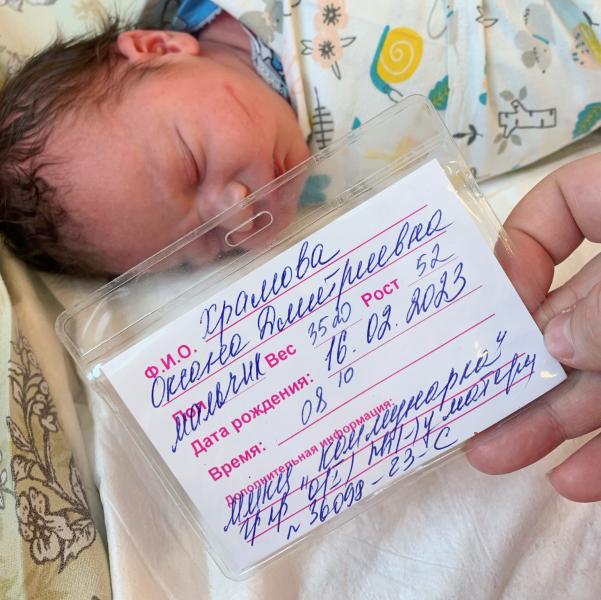 Ф.И.О. Храмова
Оксана Дмитриевна
Пол: мальчик Вес 3520 Рост 52
Дата рождения: 16.02.2023
Время: 08 10
Дополнительная информация:
ММКЦ "Коммунарка"
гр. кр. 0(I) у матери
N 36098-23-С